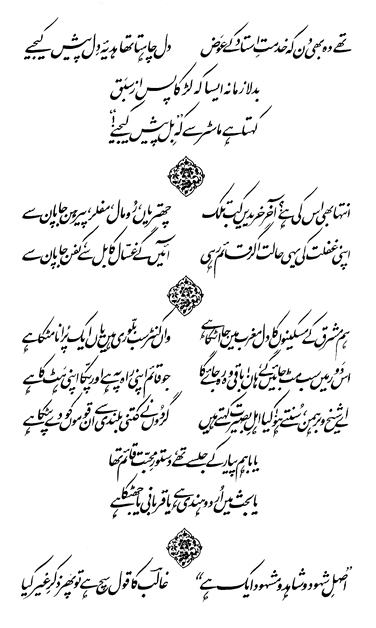 تھے وہ بھی دن کہ خدمتِ استاد کے عوض دل چاہتا تھا ہدیۂ دل پیش کیجیے
بدلا زمانہ ایسا کہ لڑکا پس از سبق
کہتا ہے ماسٹر سے کہ ”بل پیش کیجیے!“
انتہا بھی اس کی ہے؟ آخر خریدیں کب تلک چھتریاں، رُومال، مفلر، پیرہن جاپان سے
اپنی غفلت کی یہی حالت اگر قائم رہی آئیں گے غسّال کابل سے، کفن جاپان سے
ہم مشرق کے مسکینوں کا دل مغرب میں جا اٹکا ہے واں کنٹر سب بلّوری ہیں یاں ایک پُرانا مٹکا ہے
اس دَور میں سب مٹ جائیں گے، ہاں! باقی وہ رہ جائے گا جو قائم اپنی راہ پہ ہے اور پکّا اپنی ہٹ کا ہے
اے شیخ و برہمن، سُنتے ہو! کیا اہلِ بصیرت کہتے ہیں گردُوں نے کتنی بلندی سے ان قوموں کو دے پٹکا ہے
یا باہم پیار کے جلسے تھے، دستورِ محبّت قائم تھا
یا بحث میں اُردو ہندی ہے یا قربانی یا جھٹکا ہے
”اصلِ شہود و شاہد و مشہود ایک ہے“ غالبؔ کا قول سچ ہے تو پھر ذکرِ غیر کیا